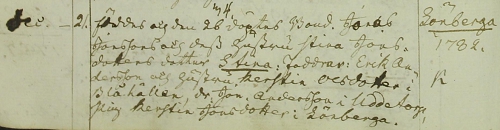 Dec. — 21. föddes och den 26 döptes Bond. Jonas
Jonssons och dess Hustru Stina Jons-
dotters dotter Stina: Faddrar: Erik An-
dersson och Hustru Kerstin Olsdotter i
Blåhällen, dr. Jon Andersson i Uddetorp,
pig. Kerstin Jonsdotter i Tonberga.
Tonberga
1782.